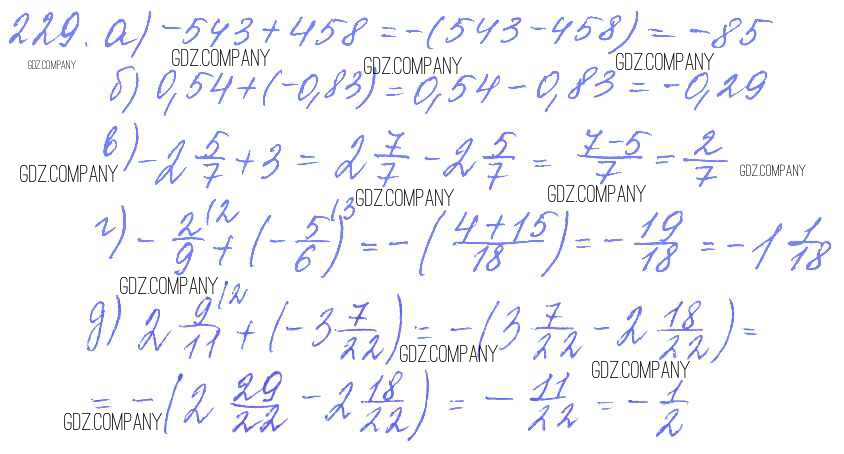 229. а) -543 + 458 = -(543 - 458) = -85
GDZ.COMPANY GDZ.COMPANY GDZ.COMPANY GDZ.COMPANY
б) 0,54 + (-0,83) = 0,54 - 0,83 = -0,29
в) -2 5/7 + 3 = 2 7/7 - 2 5/7 = (7-5)/7 = 2/7
GDZ.COMPANY GDZ.COMPANY GDZ.COMPANY GDZ.COMPANY
г) - 2/9 (2 + (- 5/6) (3 = -((4+15)/18) = - 19/18 = -1 1/18
GDZ.COMPANY
д) 2 9/11 (2 + (-3 7/22) = -(3 7/22 - 2 18/22) =
GDZ.COMPANY GDZ.COMPANY
= -(2 29/22 - 2 18/22) = - 11/22 = - 1/2
GDZ.COMPANY